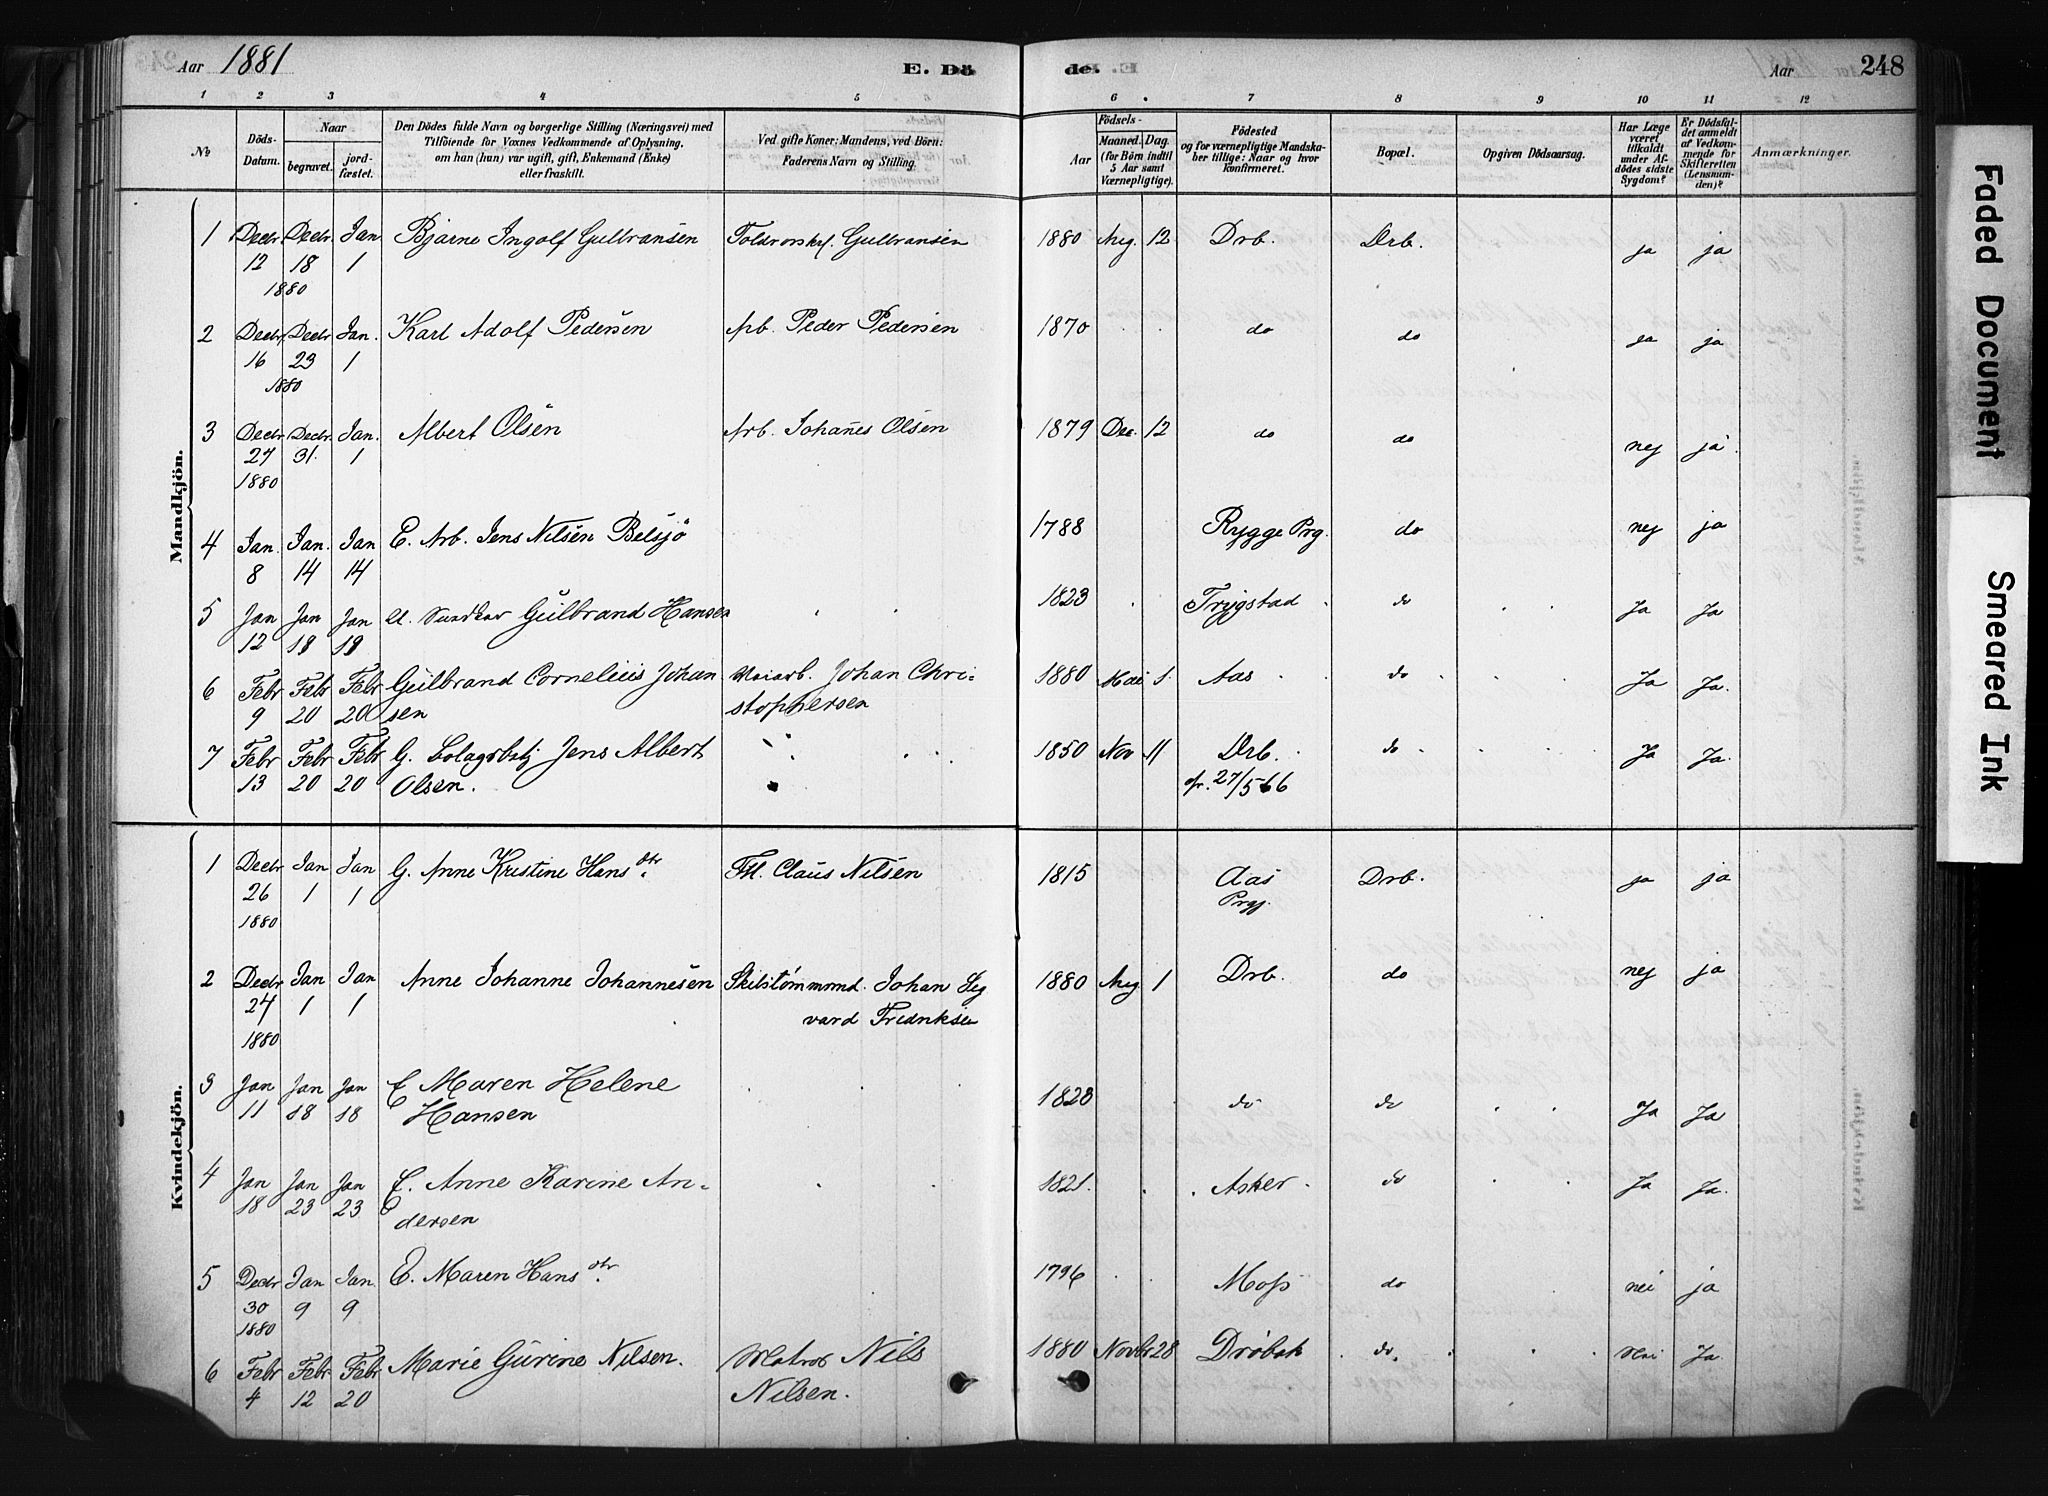 Aar 1881 E. Dö de. Aar 248
1 2 3 4 5 6 7 8 9 10 11 12
№
Döds-Datum.
Naar
begravet.
jord-fæstet.
Den Dödes fulde Navn og borgerlige Stilling (Næringsvei) med
Tilföiende for Voxnes Vedkommende af Oplysning,
om han (hun) var ugift, gift, Enkemand (Enke)
eller fraskilt.
Ved gifte Koner: Mandens, ved Börn:
Faderens Navn og Stilling.
Födsels-
Aar
Maaned. Dag.
(for Börn indtil
5 Aar samt
Værnepligtige).
Födested
og for værnepligtige Mandska-
ber tillige: Naar og hvor
konfirmeret.
Bopæl.
Opgiven Dödsaarsag.
Har Læge
været
tilkaldt
under Af-
dödes sidste
Sygdom?
Er Dödsfal-
det anmeldt
af Vedkom-
mende for
Skifteretten
(Lensman-
den)?
Anmærkninger.
Mandkjön.
1 Decbr Decbr Jan Bjarne Ingolf Gulbransen Gulbransen 1880 Aug. 12 Drb. Drb. ja ja
12 18 1
1880
2 Decbr. Decbr Jan. Karl Adolf Pedersen Arb. Peder Pedersen 1870 do do ja ja
16 23 1
1880
3 Decbr Decbr. Jan. Albert Olsen Arb. Johañes Olsen 1879 Dec. 12 do do nej ja
27 31. 1
1880
4 Jan. Jan. Jan E. Arb. Jens Nilsen Belsjö 1788 Rygge Prg. do nej ja
8 14 14
5 Jan Jan Jan Gulbrand Hansen 1823 Trygstad do Ja Ja
12 18 18
6 Febr Febr Febr Gulbrand Cornelius Johan Johan Chri- 1880 Mai 1. Aas do Ja Ja.
9 20 20 sen stophersen
7 Febr Febr Febr G. Jens Albert 1850 Nov 11 Drb. do Ja Ja.
13 20 20 Olsen. 27/5 66
Kvindekjön.
1 Decbr Jan Jan G. Anne Kristine Hansdtr. Claus Nilsen 1815 Aas Drb. ja ja
26 1 1 Prgj.
1880
2 Decbr Jan Jan Anne Johanne Johannesen Skibstømmmd. Johan Sig 1880 Aug 1 Drb. do nej ja
27 1 1 vard Fredriksen
1880
3 Jan Jan Jan E Maren Helene 1828 do do Ja Ja
11 18 18 Hansen
4 Jan Jan Jan E. Anne Karine An- 1821. Asker do Ja Ja.
18 23 23 dersen
5 Decbr Jan Jan E. Maren Hansdtr. 1796 Moss do nei ja
30 9 9
1880
6 Febr Febr Febr Marie Gurine Nilsen. Matros Nils 1880 Novbr 28 Drøbak do. Nei Ja.
4 12 20 Nilsen.
Faded Document
Smeared Ink